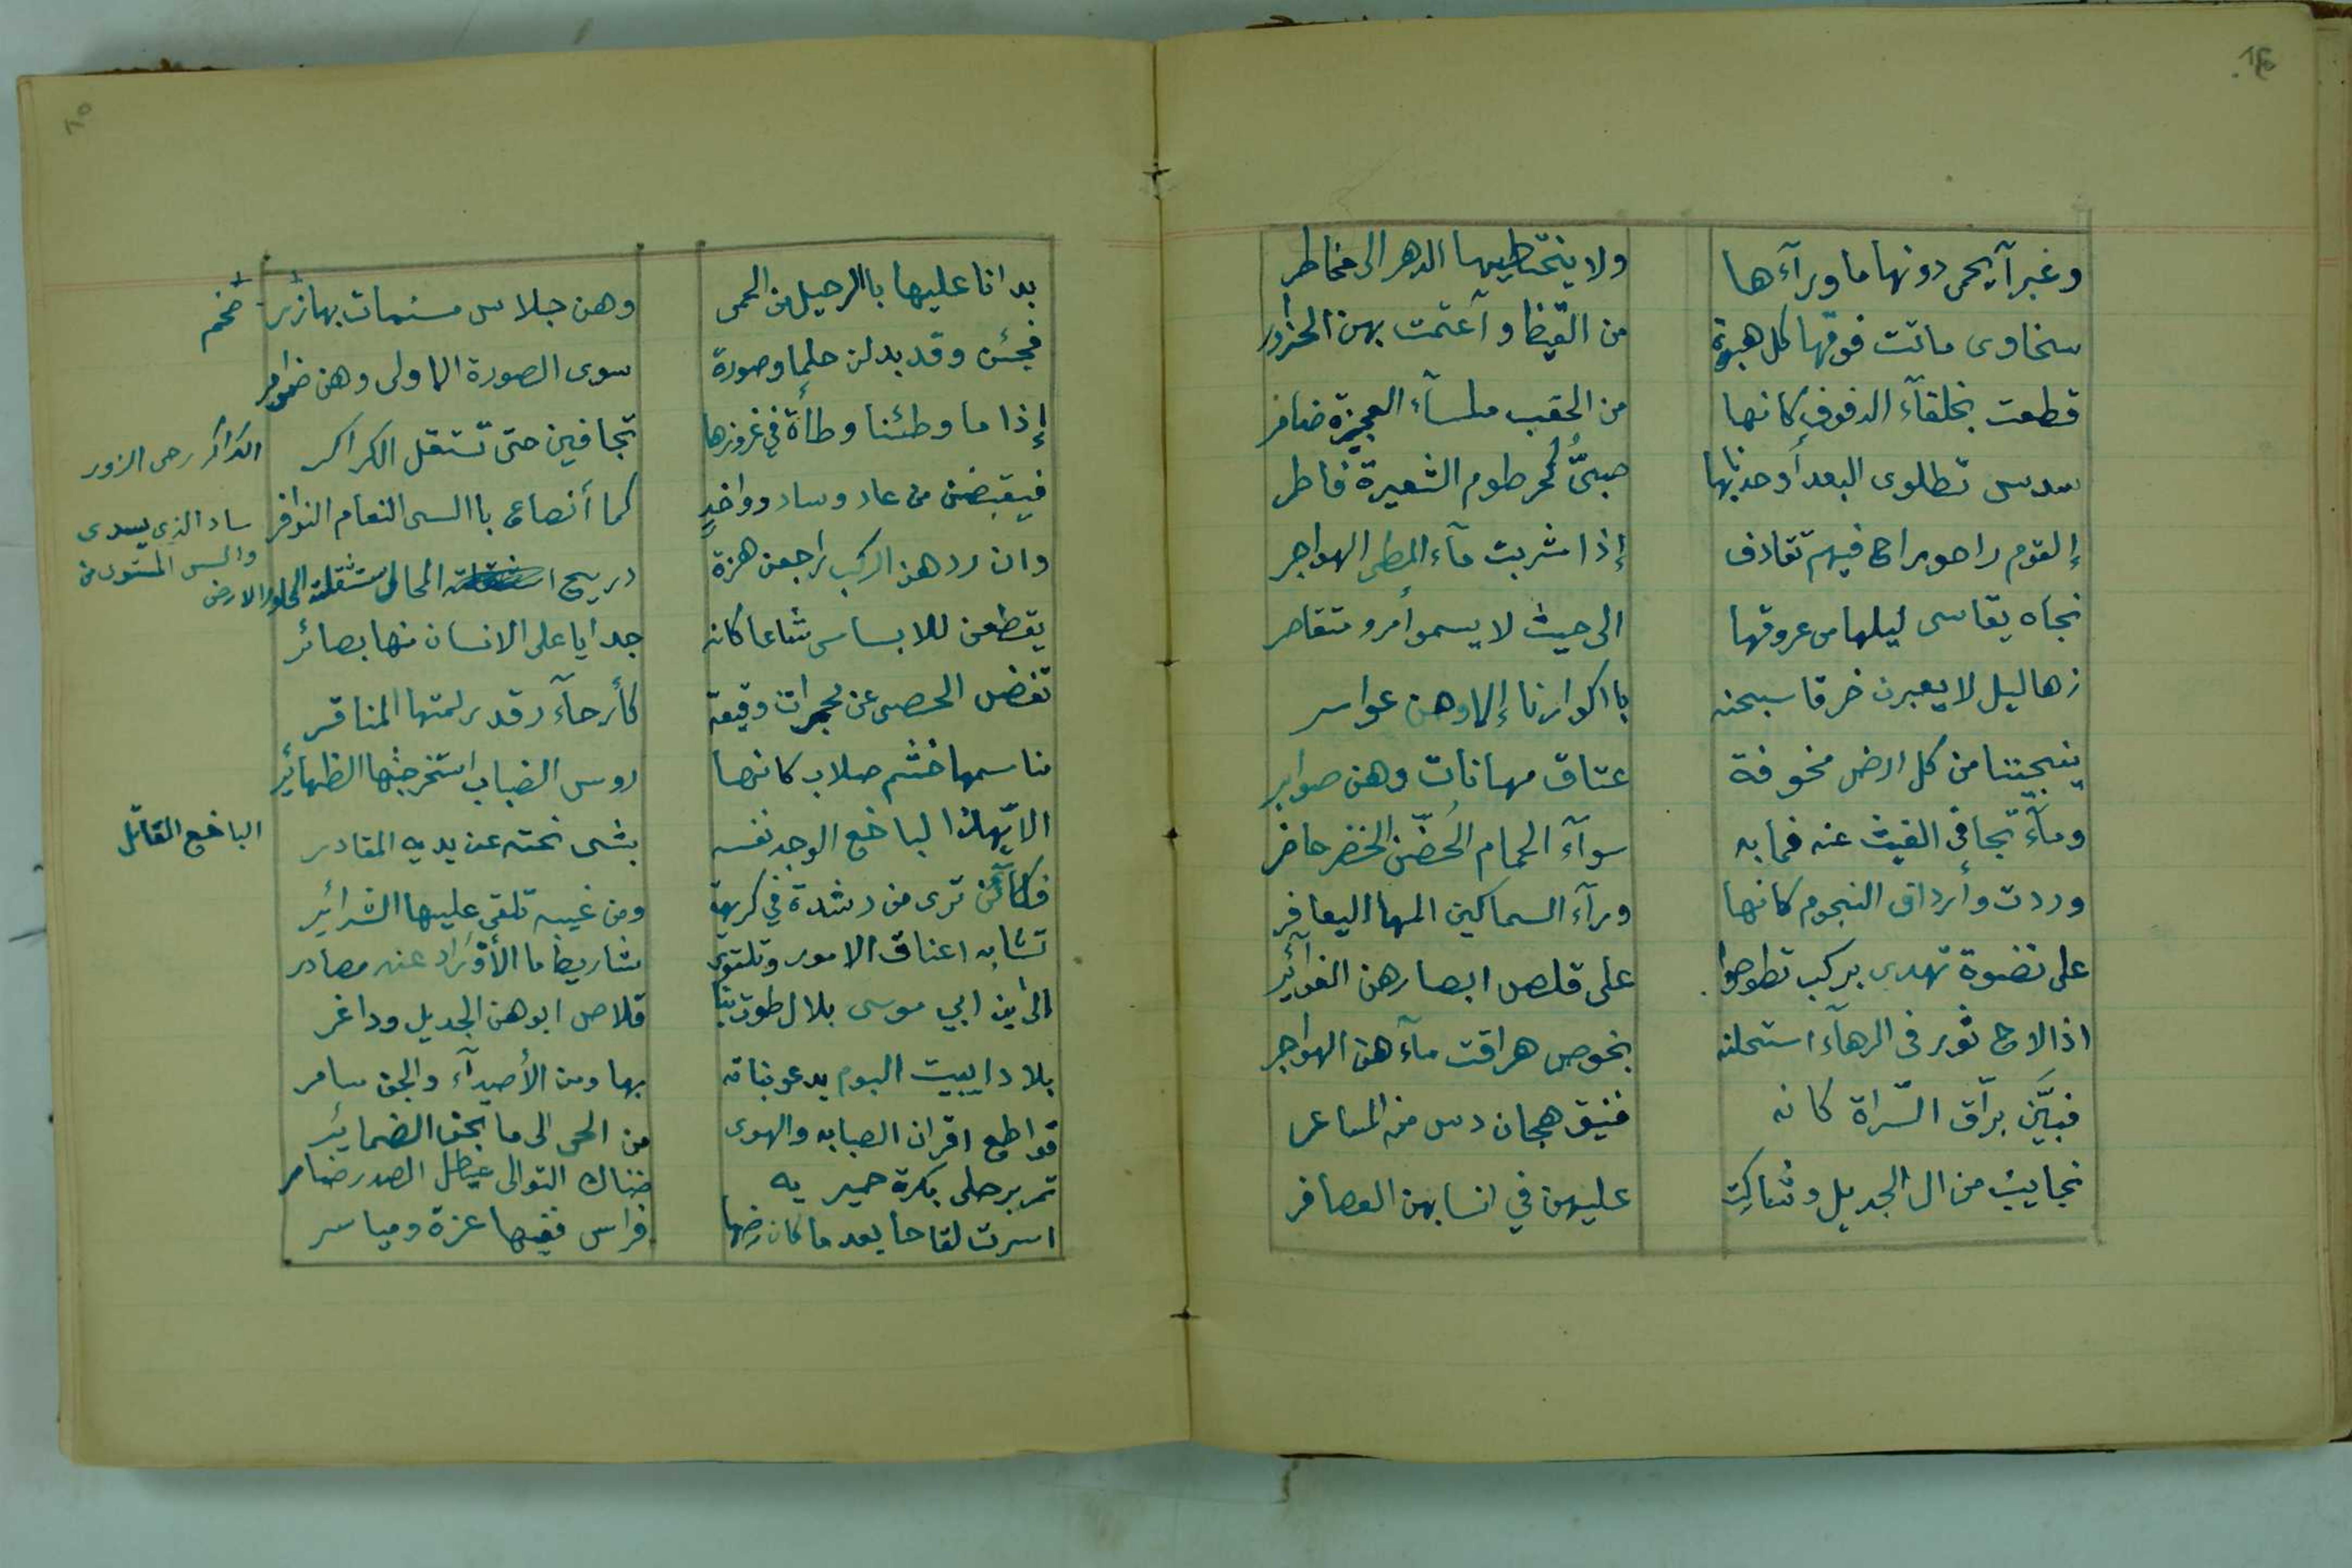 وغبرآ يحمى دونها ما ورآءها ولا يختطيها الدهر الا مخاطر
سخاوى ماتت فوقها كل هبوة من القيظ وآعتمت بهن الحزاور
قطعت بخلقآء الدفوف كانها من الحقب ملسآء العجيزة ضامر
سدس تطاوى البعد أوحدنابها صبىٌّ كخرطوم الشعيرة فاطر
إذا القوم راحوا راح فيهم تقاذف إذا شربت مآء المطى الهواجر
نجاه يقاسى ليلها من عروقها الى حيث لا يسموأمرو متقاصر
زهاليل لا يعبرن خرقا سبحنه با اكوارنا إلا وهن عواسر
ينجيننا من كل ارض مخوفة عتاق مهانات وهن صوابر
ومآء تجافى الغيث عنه فما به سوآء الحمام الحُضّن الخضر حاضر
وردت وأرداف النجوم كانها ورآء السماكين المها اليعافر
على نضوة تهدى بركب تطوحوا على قلص ابصارهن الغوآئر
اذا لاح ثور فى الرهآء استحلنه بخوص هراقت مآءهن الهواجر
فبيَّن برآق السّراة كانه فنيق هجان دس منه المساعر
نجايب من ال الجديل وشاركت عليهن في انسابهن العصافر
بدانا عليها باالرحيل من الحمى وهن جلاس مسنمات بهازر
ضخم
فجئن وقد بدلن حلما وصورة سوى الصورة الاولى وهن ضوامر
إذا ما وطئنا وطأة في غروزها تجافين حتى تستقل الكراكر
الكراكر رحى الزور
فيقبضن من عاد وساد وواخد كما أنصاع باالسى النعام النوافر
ساد الذى يسدى
والسى المستوى من
الارض
وان ردهن الركب راجعن هزة دريج المحال استثقلته المحاور
يقطعن للابساس شاعا كانه جدايا على الانسان منها بصائر
تفض الحصى عن مجمرات وقيعة كأرحآء رقد زلمتها المناقر
مناسمها خثم صلاب كانها روس الضباب استخرجتها الظهائر
الا ايّهذا لباخع الوجد نفسه بشى نحته عن يديه المقادر
الباخع القاتل
فكآئن ترى من رشدة في كريهة ومن غيبه تلقى عليها الشرائر
تشابه اعناق الامور وتلتوى مشاريط ما الأوراد عنه مصادر
الى ابن ابي موسى بلال طوت بنا قلاص ابوهن الجديل وداعر
بلادا يبيت البوم يدعو بناته بها ومن الأصدآء والجن سامر
قواطع اقران الصبابه والهوى من الحى الى ما تجن الضمائر
تمر برحلى بكرة حميريه ضناك التوالى عيطل الصدر ضامر
اسرت لقاحا بعد ما كان رضها فراس ففيها عزة ومياسر